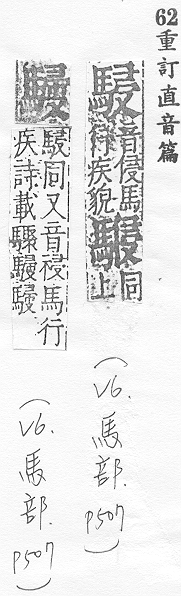 62重訂直音篇
駸音侵馬行疾貌
同上
駸同又音祲馬行疾詩載驟駸駸
(V6.馬部.P507)
(V6.馬部.P507)